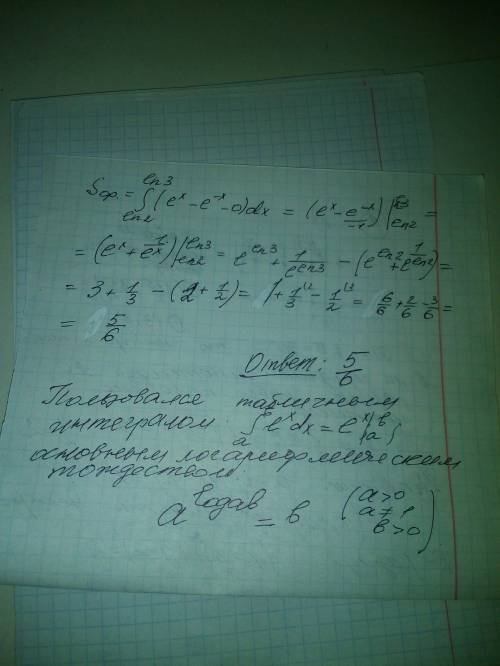 Sфр. = ∫_{ln2}^{ln3} (e^x - e^{-x} - 0)dx = (e^x - e^{-x}/-1)|_{ln2}^{ln3} =
= (e^x + 1/e^x)|_{ln2}^{ln3} = e^{ln3} + 1/e^{ln3} - (e^{ln2} + 1/e^{ln2}) =
= 3 + 1/3 - (2 + 1/2) = 1 + 1/3 - 1/2 = 6/6 + 2/6 - 3/6 =
= 5/6
Ответ: 5/6
Пользовался табличным
интегралом ∫_a^в e^x dx = e^x|_a^в ;
основным логарифмическим
тождеством
a^{log_a в} = в (a>0
a≠1
в>0)